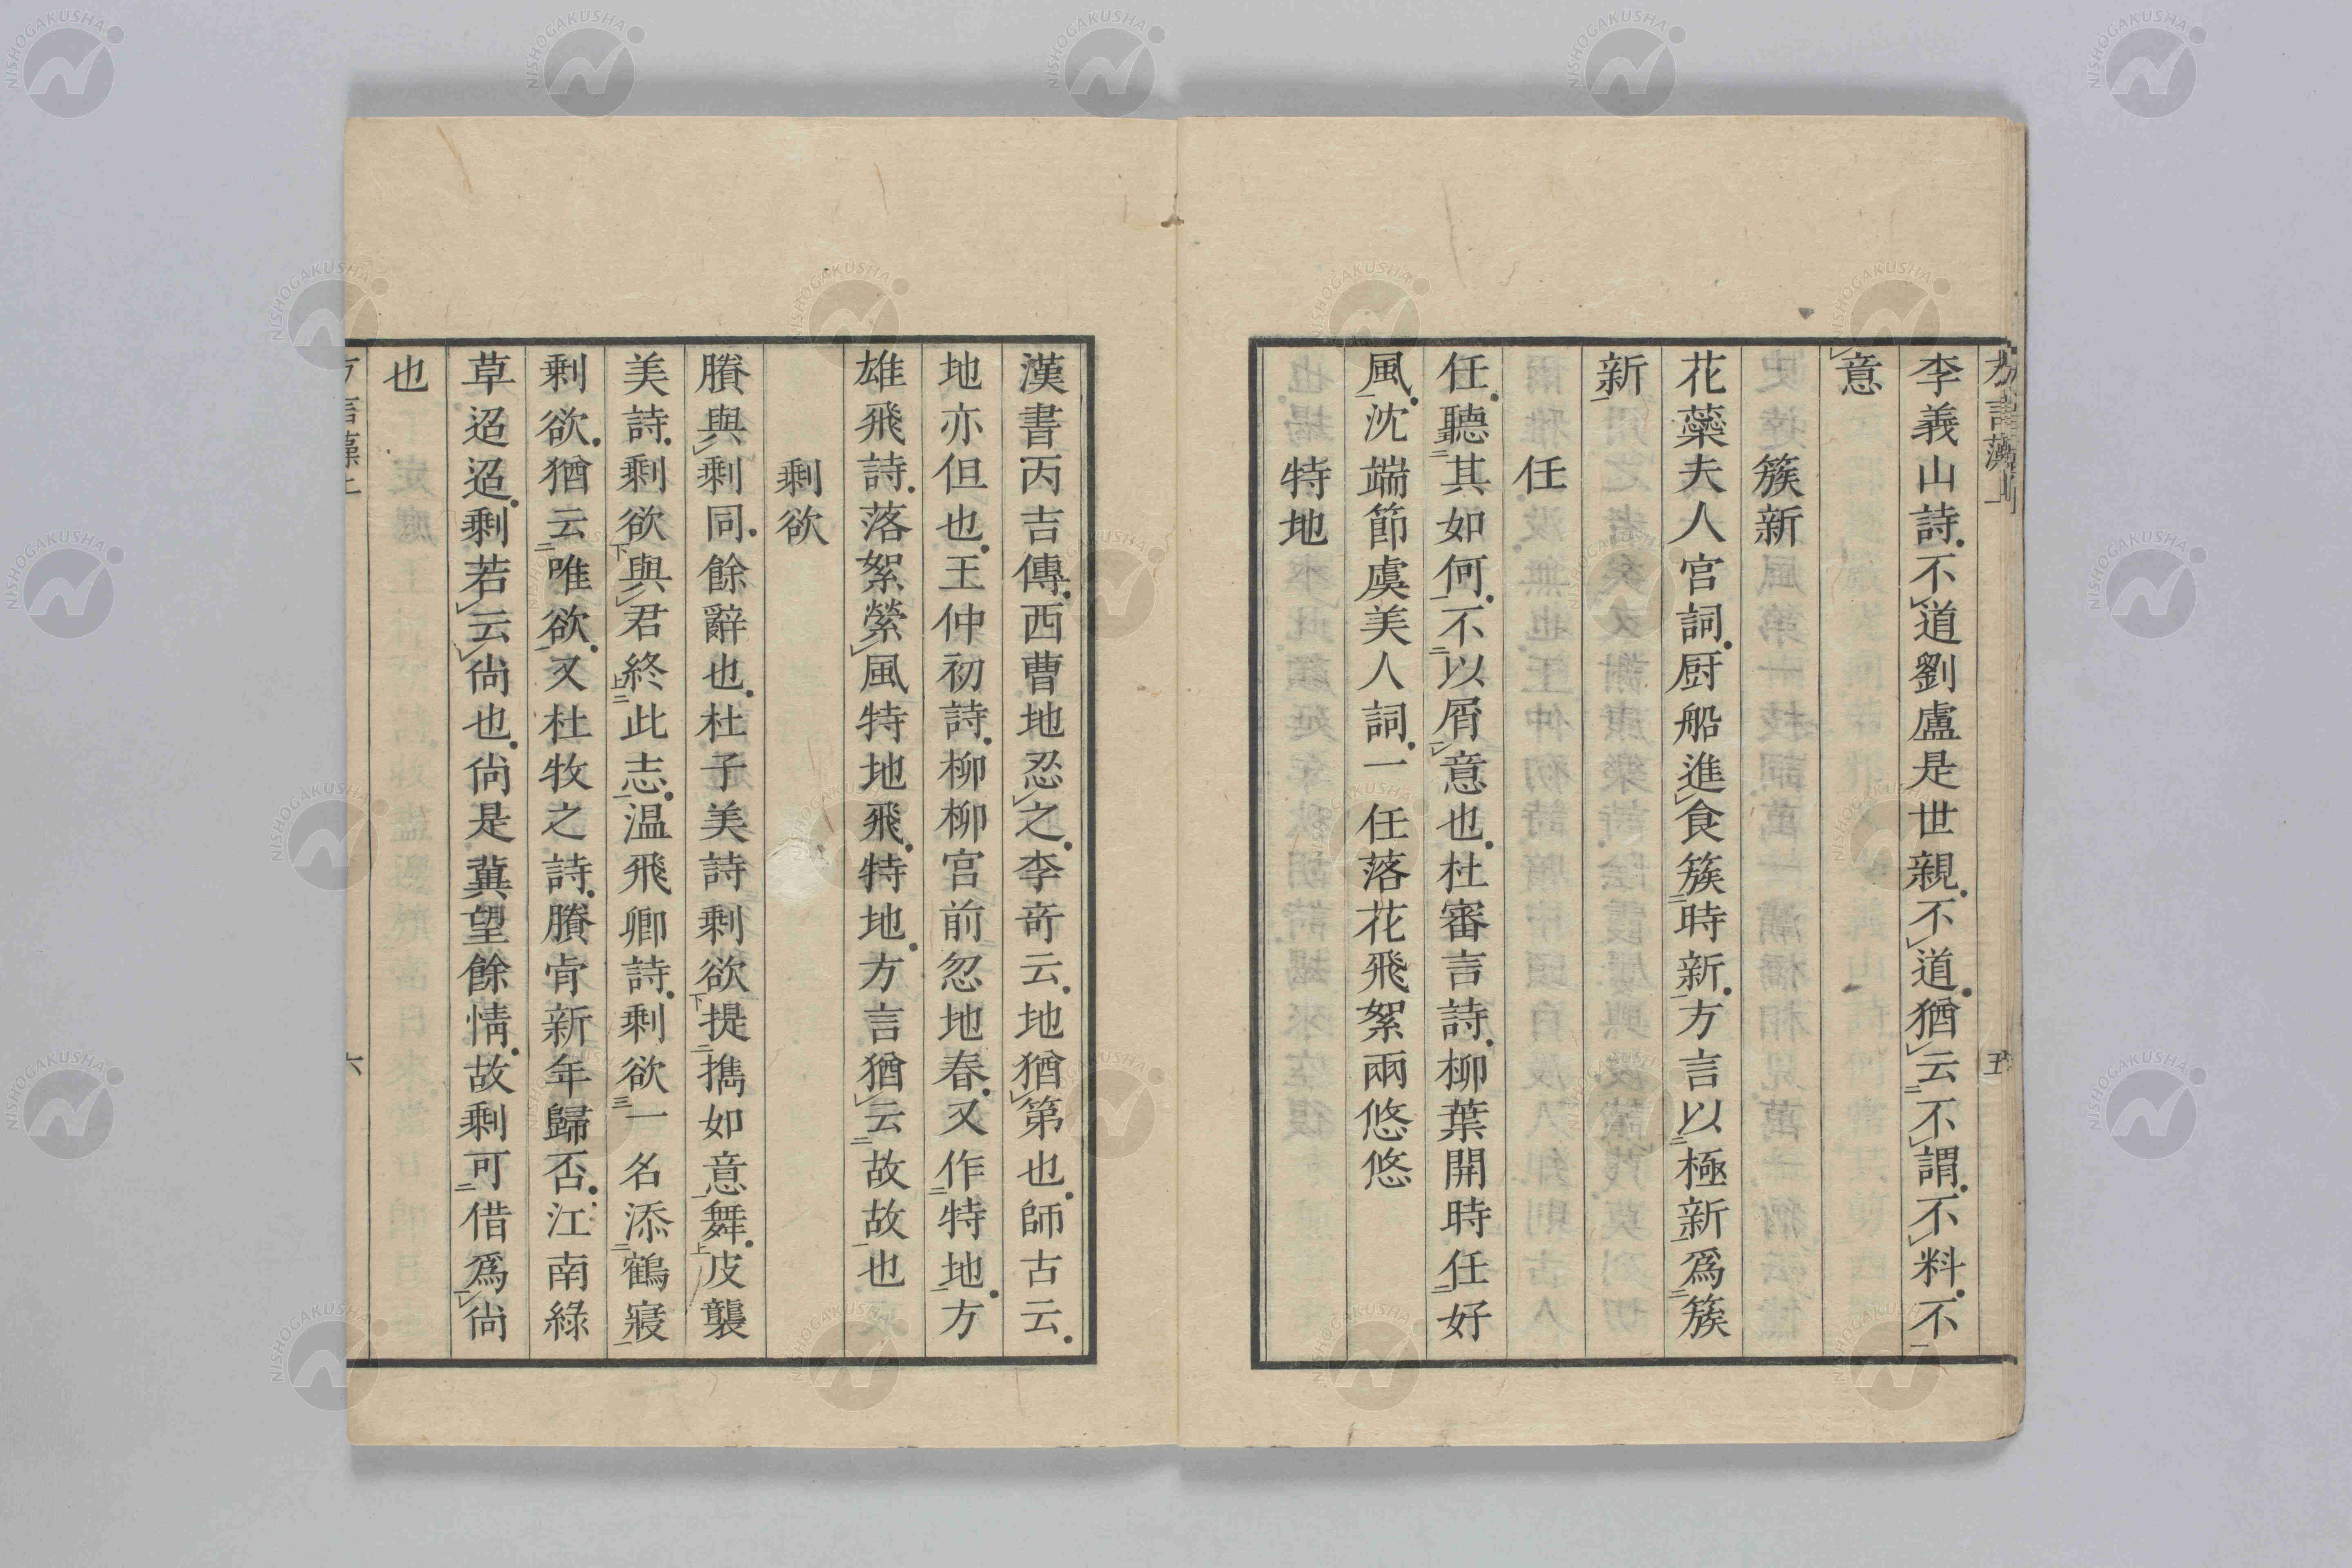 李義山詩不道劉盧是世親不道猶云不謂不料不
意
簇新
花蘂夫人宮詞厨船進食簇時新方言以極新爲簇
新
任
任聽其如何不以屑意也杜審言詩柳葉開時任好
風沈端節虞美人詞一任落花飛絮兩悠悠
特地
五
漢書丙吉傳西曹地忍之李奇云地猶第也師古云
地亦但也王仲初詩柳柳宮前忽地春又作特地方
雄飛詩落絮縈風特地飛特地方言猶云故故也
剩欲
賸與剩同餘辭也杜子美詩剩欲提擕如意舞皮襲
美詩剩欲與君終此志温飛卿詩剩欲一名添鶴寢
剩欲猶云唯欲又杜牧之詩賸肯新年歸否江南綠
草迢迢剩若云尙也尙是冀望餘情故剩可借爲尙
也
六
NISHOGAKUSHA